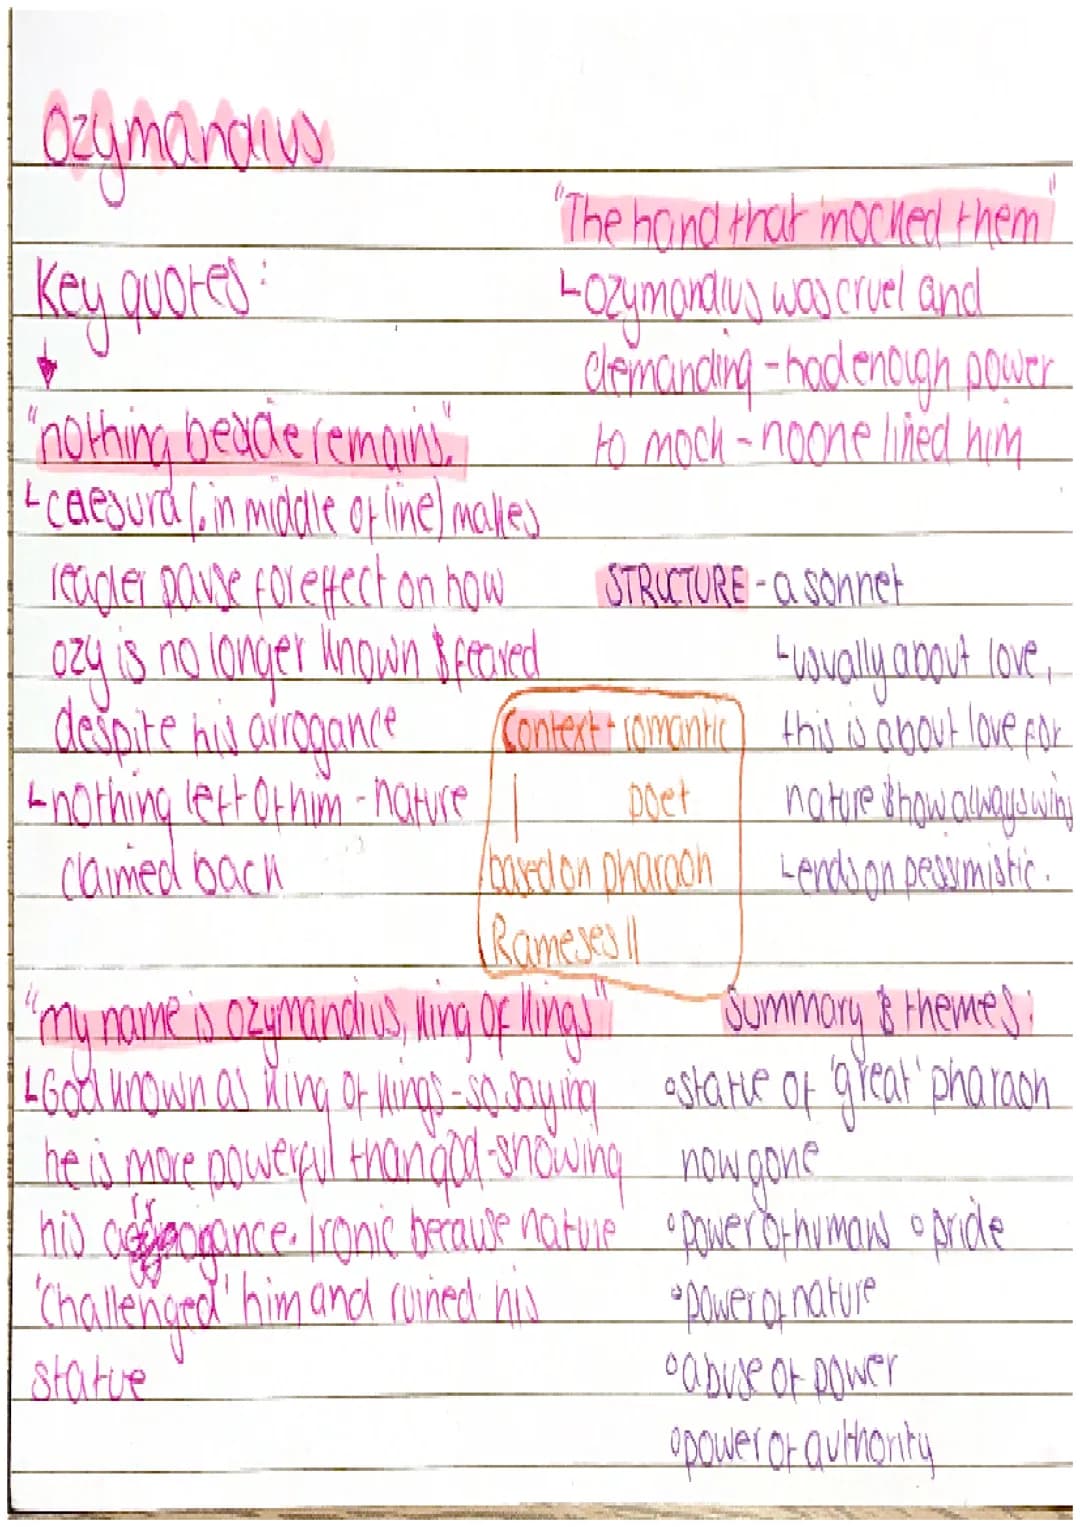 Ozymandius
Key quotes:
"nothing beside remains."
caesura (. in middle of line) makes
reader pause for effect on how
ozy is no longer known & feared
despite his arrogance
nothing left of him - nature
claimed back
"my name is ozymandius, king of kings"
God known as king of kings - so saying
he is more powerful than god - showing
his arrogance. Ironic because nature
'challenged' him and ruined his
statue
"The hand that mocked them"
Ozymandius was cruel and
demanding - had enough power
to mock - noone liked him
STRUCTURE - a sonnet
usually about love,
this is about love for
nature & how always wins
ends on pessimistic.
Context - romantic
poet
based on pharaoh
Rameses II
Summary & themes:
statue of 'great' pharaoh
now gone
power of humans pride
power of nature
abuse of power
power of authority